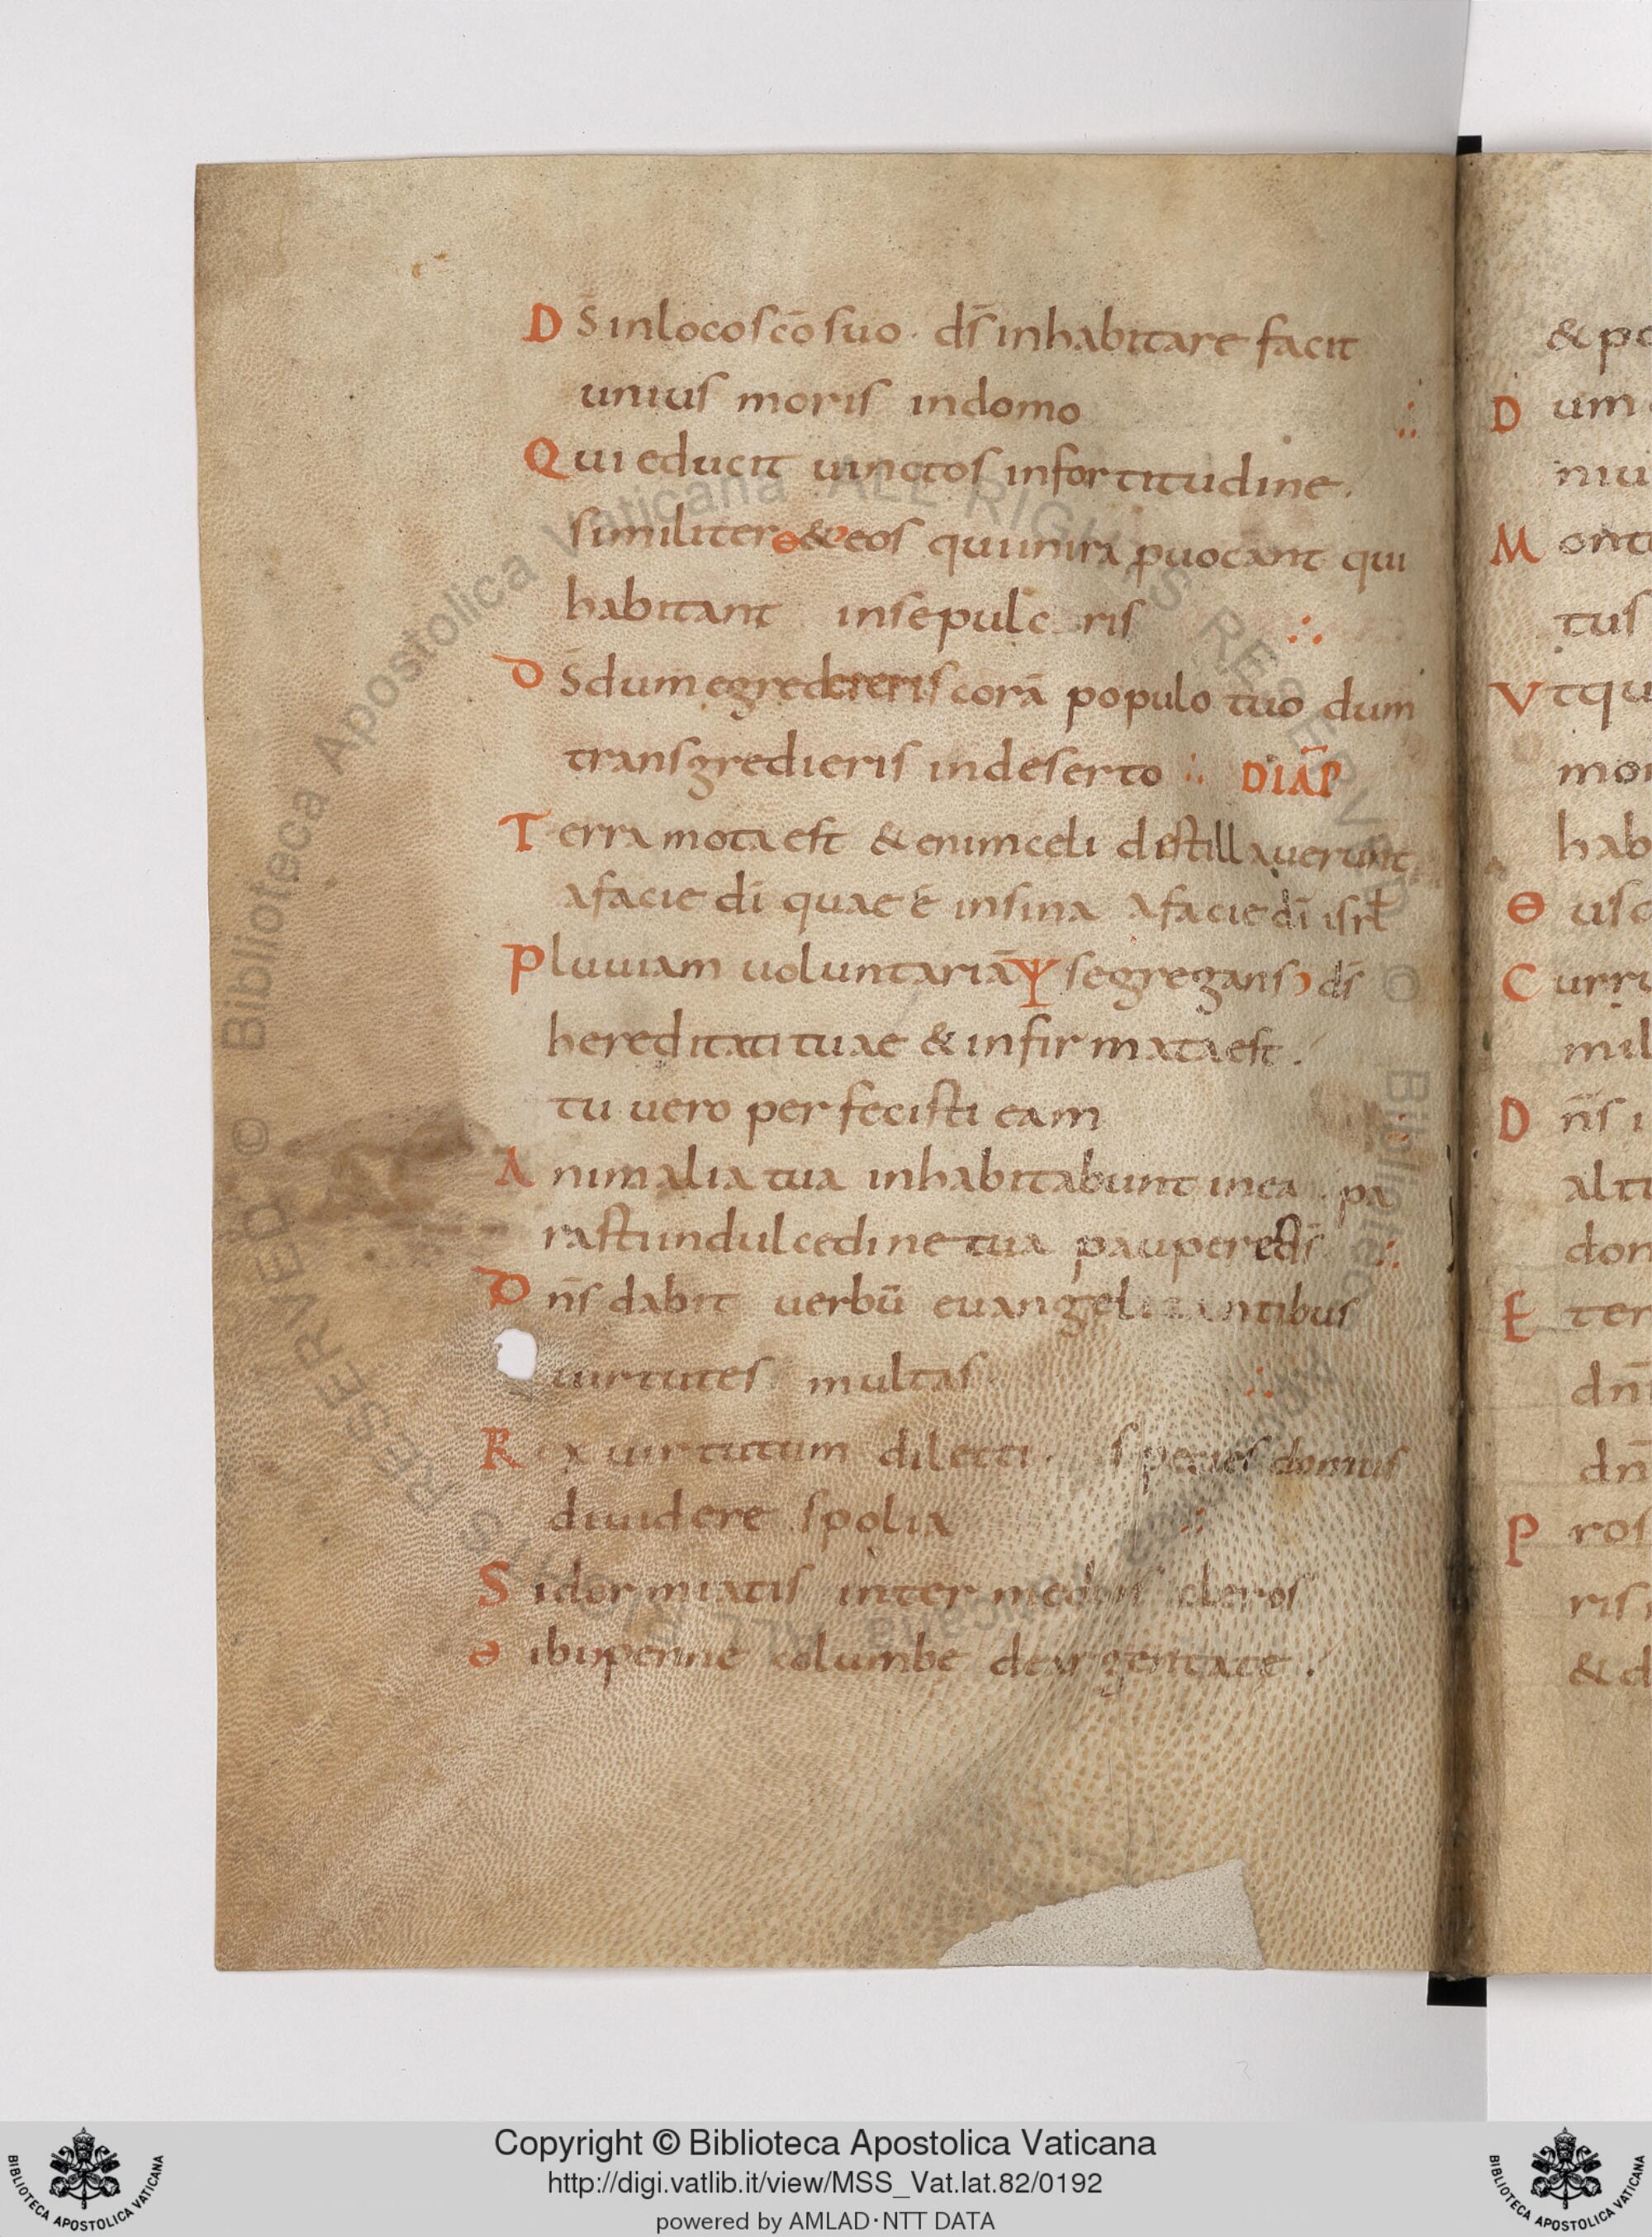 D s̄ inloco sc̄o suo · ds̄ inhabitare facit
unius moris indomo
Qui educit uinctos infortitudine.
similiter & eos quiinira puocant qui
habitant insepulcris
D s̄ dum egredereris corā populo tuo dum
transgredieris indeserto DIĀP
Terra mota est & enim celi distillauerunt
afacie dī quae ē insina afacie dī isrł
Pluuiam uoluntariā segregans ds̄
hereditati tuae & infirmata est.
tu uero perfecisti eam
Animalia tua inhabitabunt inea . pa
rasti indulcedine tua pauperi ds̄
D n̄s dabit uerbū euangelizantibus
uirtutes multas
Rex uirtutum dilecti . speciei domus
diuidere spolia
Si dormiatis inter medios cleros
ibi penne columbe deargentate.
& pe
D um
niu
M onti
tus
V tqu
mon
hab
usq
C urru
mil
D n̄s i
alti
don
E ten
dn̄
dn̄
P ros
ris i
& d
BIBLIOTECA APOSTOLICA VATICANA
Copyright © Biblioteca Apostolica Vaticana
http://digi.vatlib.it/view/MSS_Vat.lat.82/0192
powered by AMLAD·NTT DATA
BIBLIOTECA APOSTOLICA VATICANA
Biblioteca Apostolica Vaticana ALL RIGHTS RESERVED ©